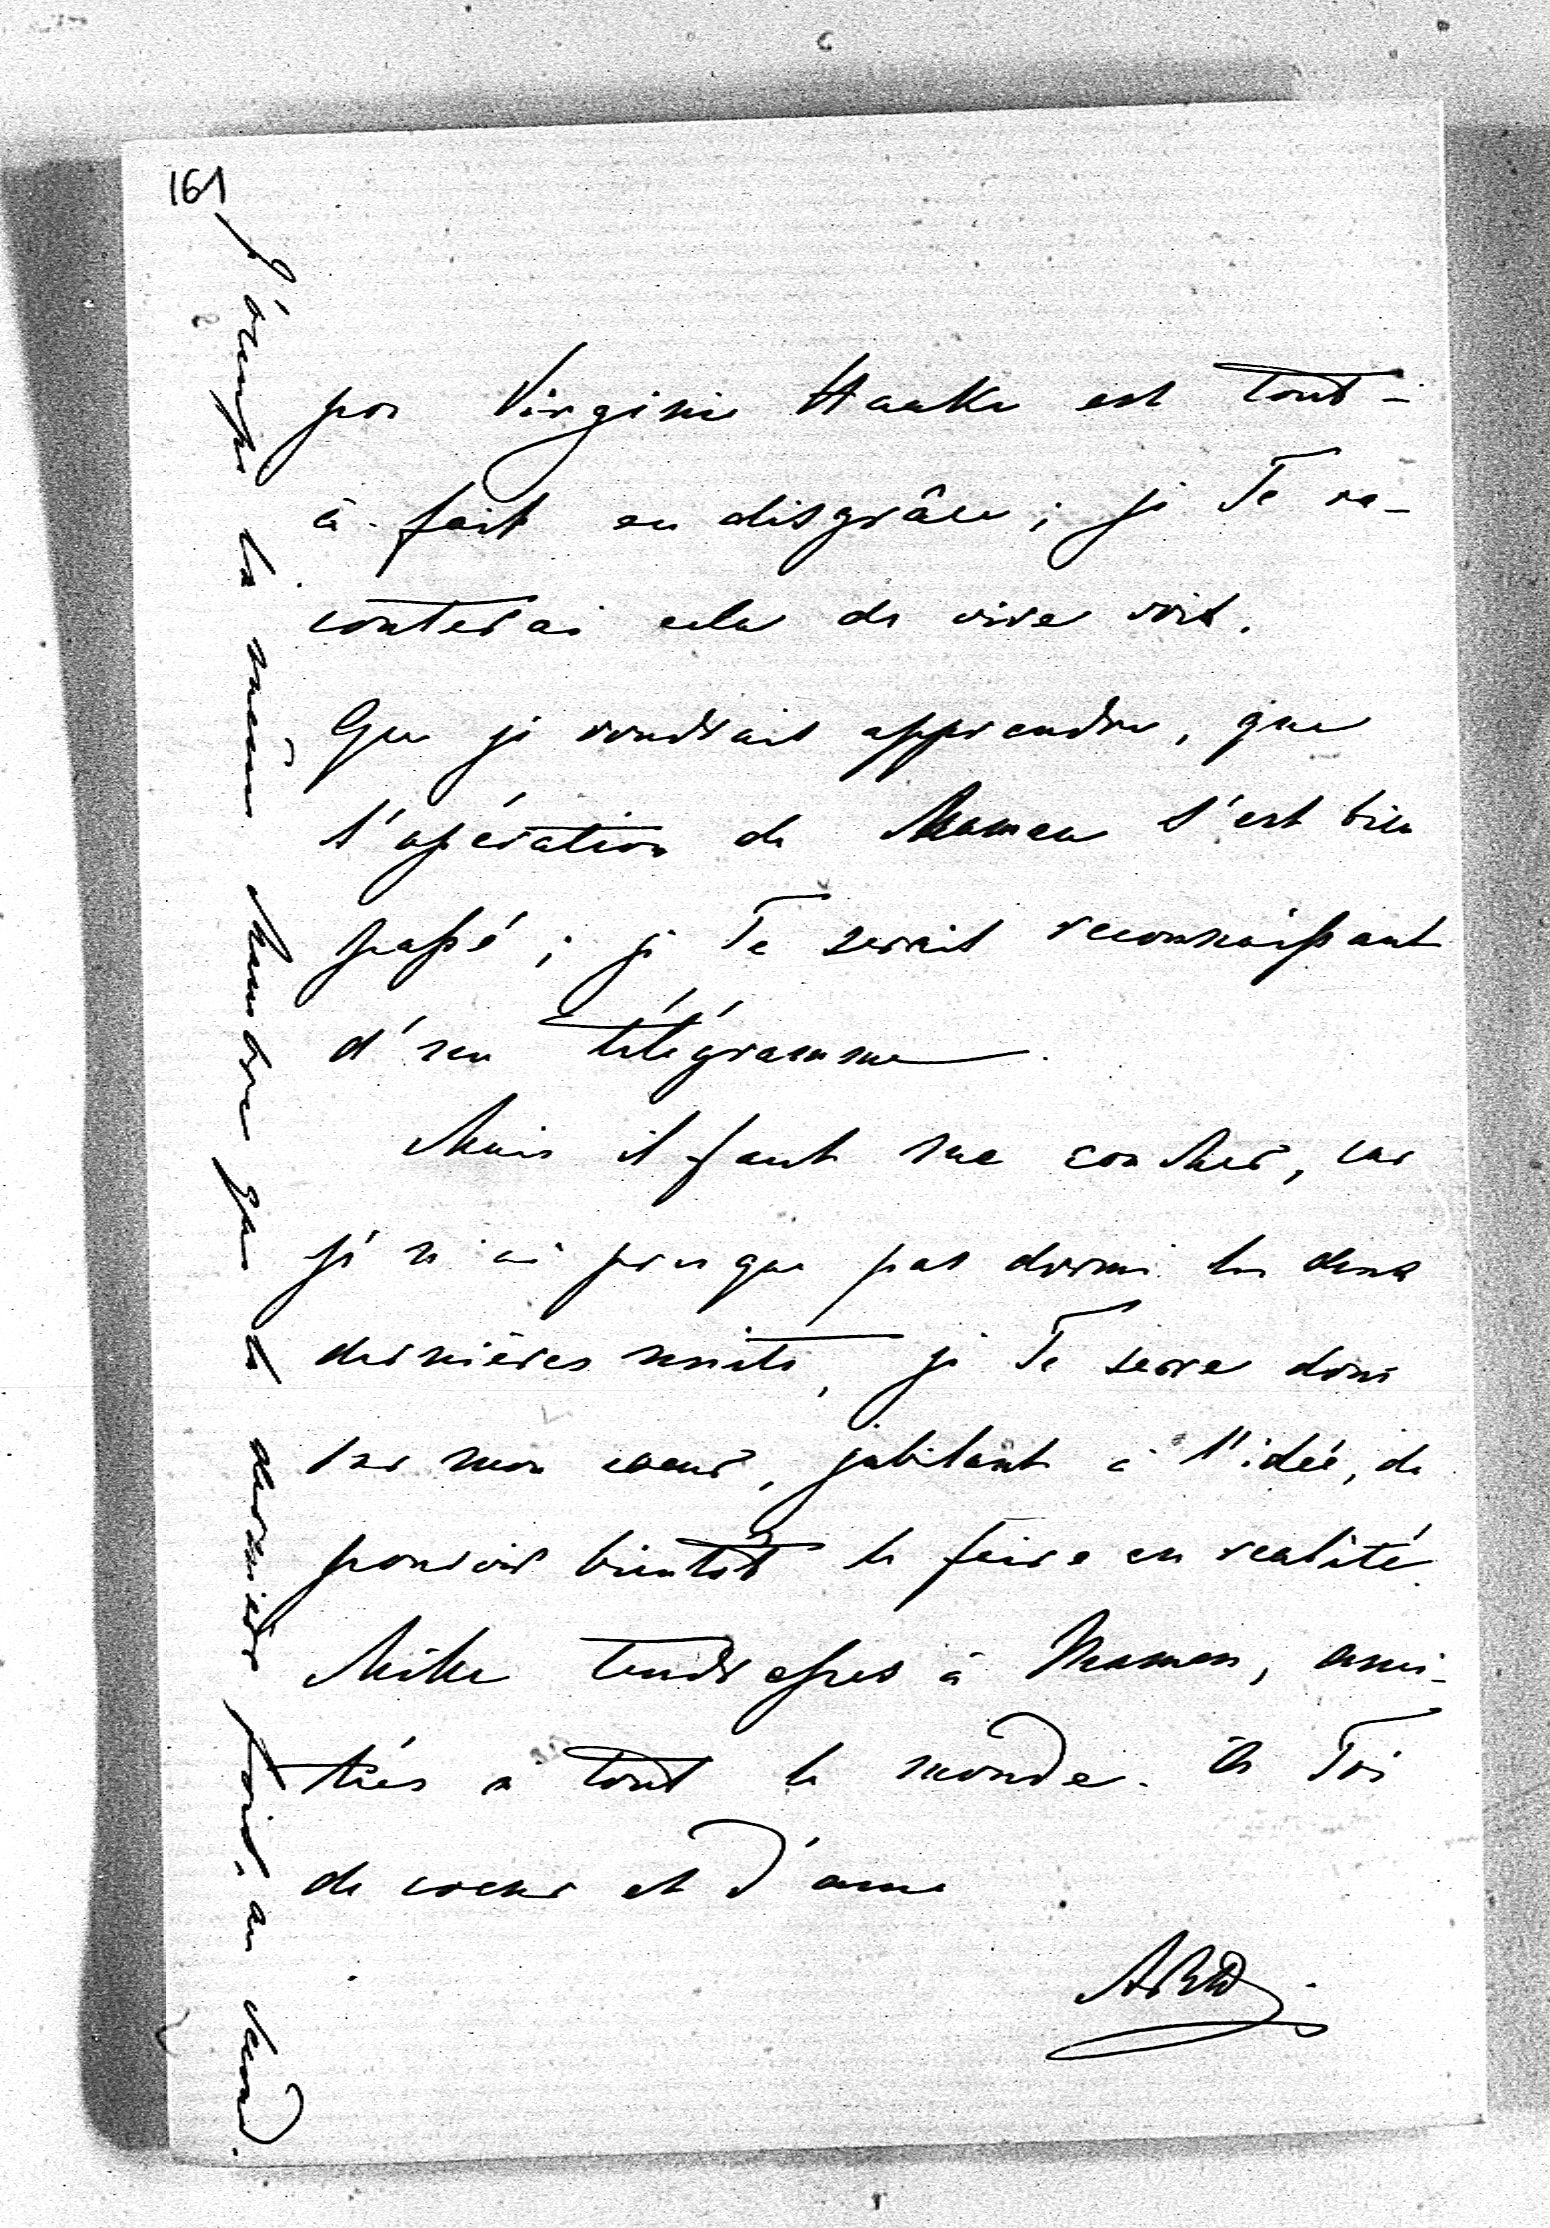 161
par Virginie Haake est tout-
à-fait en disgrâce; je Te ra-
conterai cela de vive voix.
Que je voudrais apprendre, que
l'opération de Maman s'est bien
passé; je Te serait reconnaissant
d'un télégramme.
Mais il faut me coucher, car
je n'ai presque pas dormi les deux
dernières nuits, je Te serre donc
sur mon coeur, jubilant à l'idée, de
pouvoir bientôt le faire en realité.
Mille tendresses à Maman, ami-
tiés à tout le monde. A Toi
de coeur et d'ame
J'occupe la même chambre que la dernière fois, au Nord.